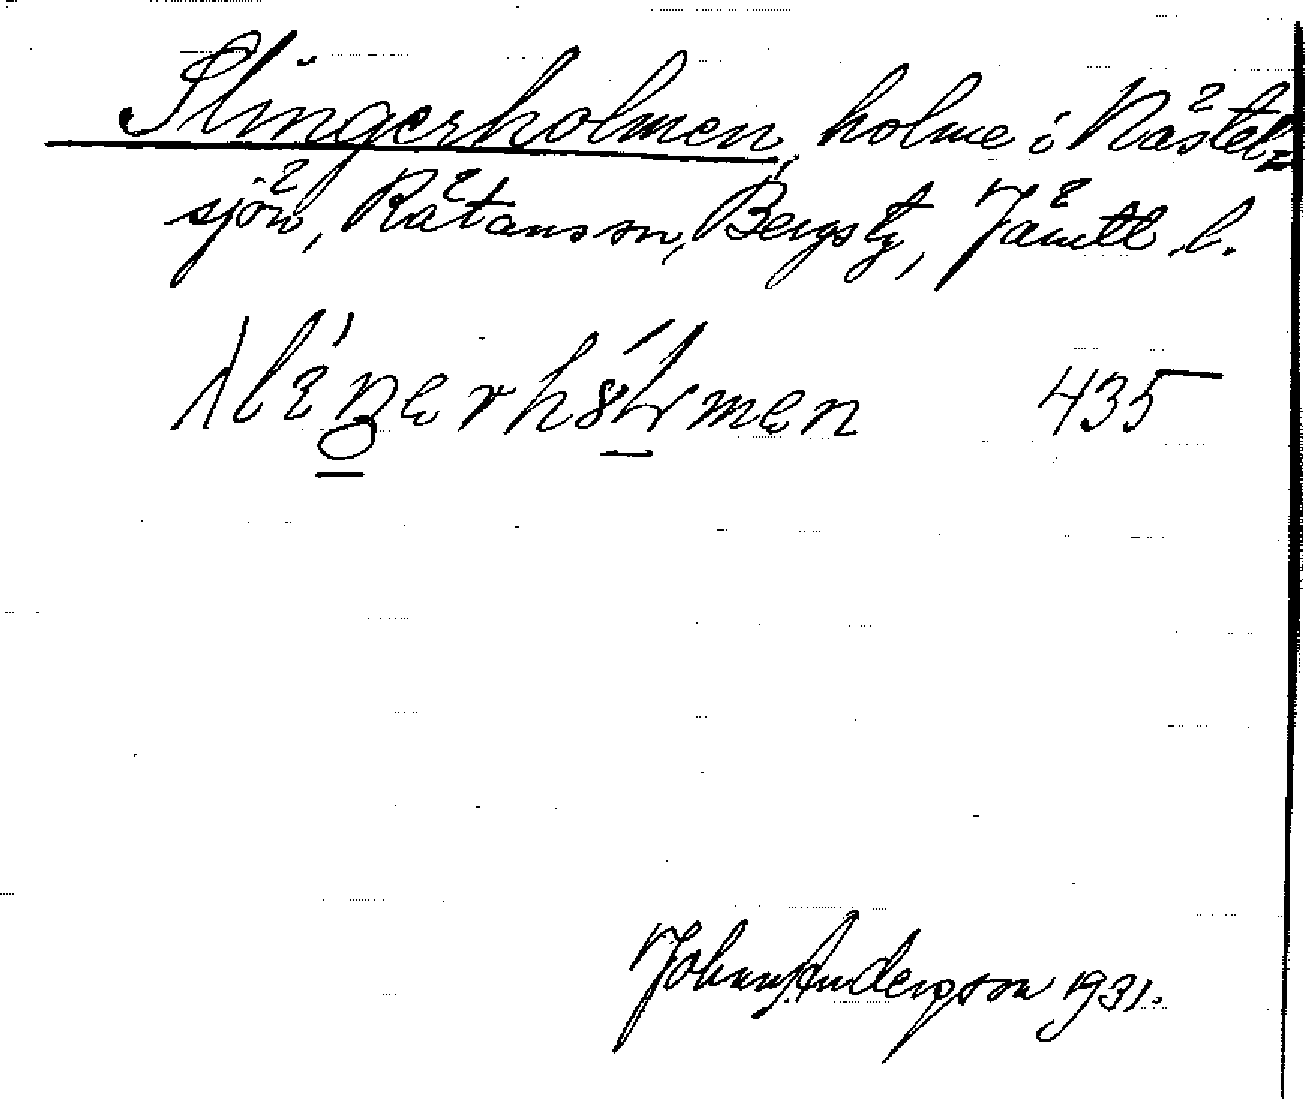 Slingerholmen, holme i Råstel=
sjön, Rätans sn, Bergs tg, Jämtl. l.
435
Johan Anderson 1931.